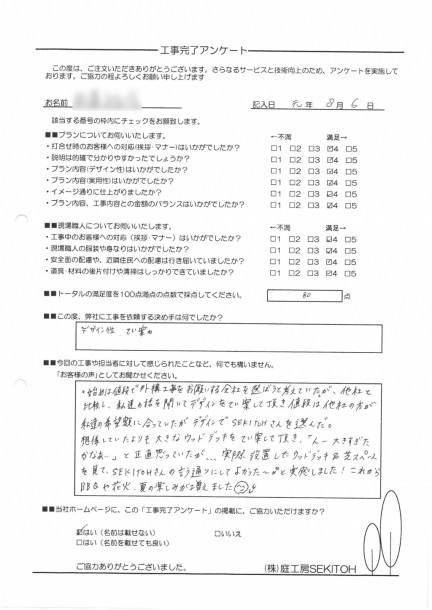 工事完了アンケート
この度は、ご注文いただきありがとうございます。さらなるサービスと技術向上のため、アンケートを実施して
おります。ご協力の程よろしくお願い申し上げます
お名前 記入日 元 年 8 月 6 日
該当する番号の枠内にチェックをお願致します。
■■プランについてお伺いいたします。 ←不満 満足→
・打合せ時のお客様への対応(挨拶・マナー)はいかがでしたか? □1 □2 □3 ☑4 □5
・説明は的確で分かりやすかったでしょうか? □1 □2 □3 ☑4 □5
・プラン内容(デザイン性)はいかがでしたか? □1 □2 □3 ☑4 □5
・プラン内容(実用性)はいかがでしたか? □1 □2 □3 ☑4 □5
・イメージ通りに仕上がりましたか? □1 □2 □3 ☑4 □5
・プラン内容、工事内容との金額のバランスはいかがでしたか? □1 □2 □3 ☑4 □5
■■現場職人についてお伺いいたします。 ←不満 満足→
・工事中のお客様への対応(挨拶・マナー)はいかがでしたか? □1 □2 □3 ☑4 □5
・現場職人の服装や身なりはいかがでしたか? □1 □2 □3 ☑4 □5
・安全面の配慮や、近隣住民への配慮は行き届いていましたか? □1 □2 □3 ☑4 □5
・道具・材料の後片付けや清掃はしっかりできていましたか? □1 □2 □3 ☑4 □5
■■トータルの満足度を100点満点の点数で採点してください。 80 点
■■この度、弊社に工事を依頼する決め手は何でしたか?
デザイン性 てい案力
■■今回の工事や担当者に対して感じられたことなど、何でも構いません。
「お客様の声」としてお聞かせください。
・始めは値段で外構工事をお願いする会社を選ぼうと考えていたが、他社と
比較し、私達の話を聞いてデザインをてい案して頂き値段は他社の方が
私達の希望額に合っていたがデザインでSEKITOHさんを選んだ。
想像していたよりも大きなウッドデッキをてい案して頂き、「んー大きすぎた
かなぁー」と正直思っていたが、、、実際設置したウッドデッキ&芝スペース
を見て、SEKITOHさんの言う通りにしてよかった~♪と実感しました!これから
BBQや花火、夏の楽しみが増えました
■■当社ホームページに、この「工事完了アンケート」の掲載に、ご協力いただけますか?
☑はい(名前は載せない) □いいえ
□はい(名前を載せても良い)
ご協力ありがとうございました。 (株)庭工房SEKITOH